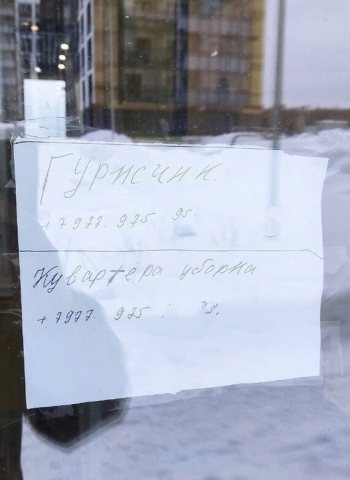 Гурисчик.
+7977. 975 95.
Кувартера уборка
+7977. 975